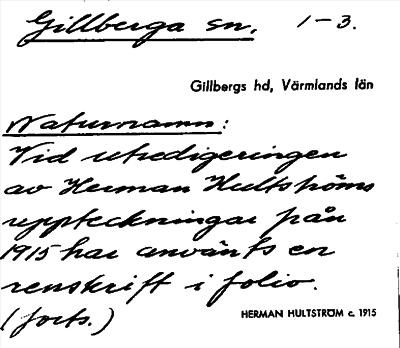 Gillberga sn. 1-3.
Gillbergs hd, Värmlands län
Naturnamn:
Vid utredigeringen
av Herman Hultströms
uppteckningar från
1915 har använts en
renskrift i folio.
(forts.)
HERMAN HULTSTRÖM c. 1915